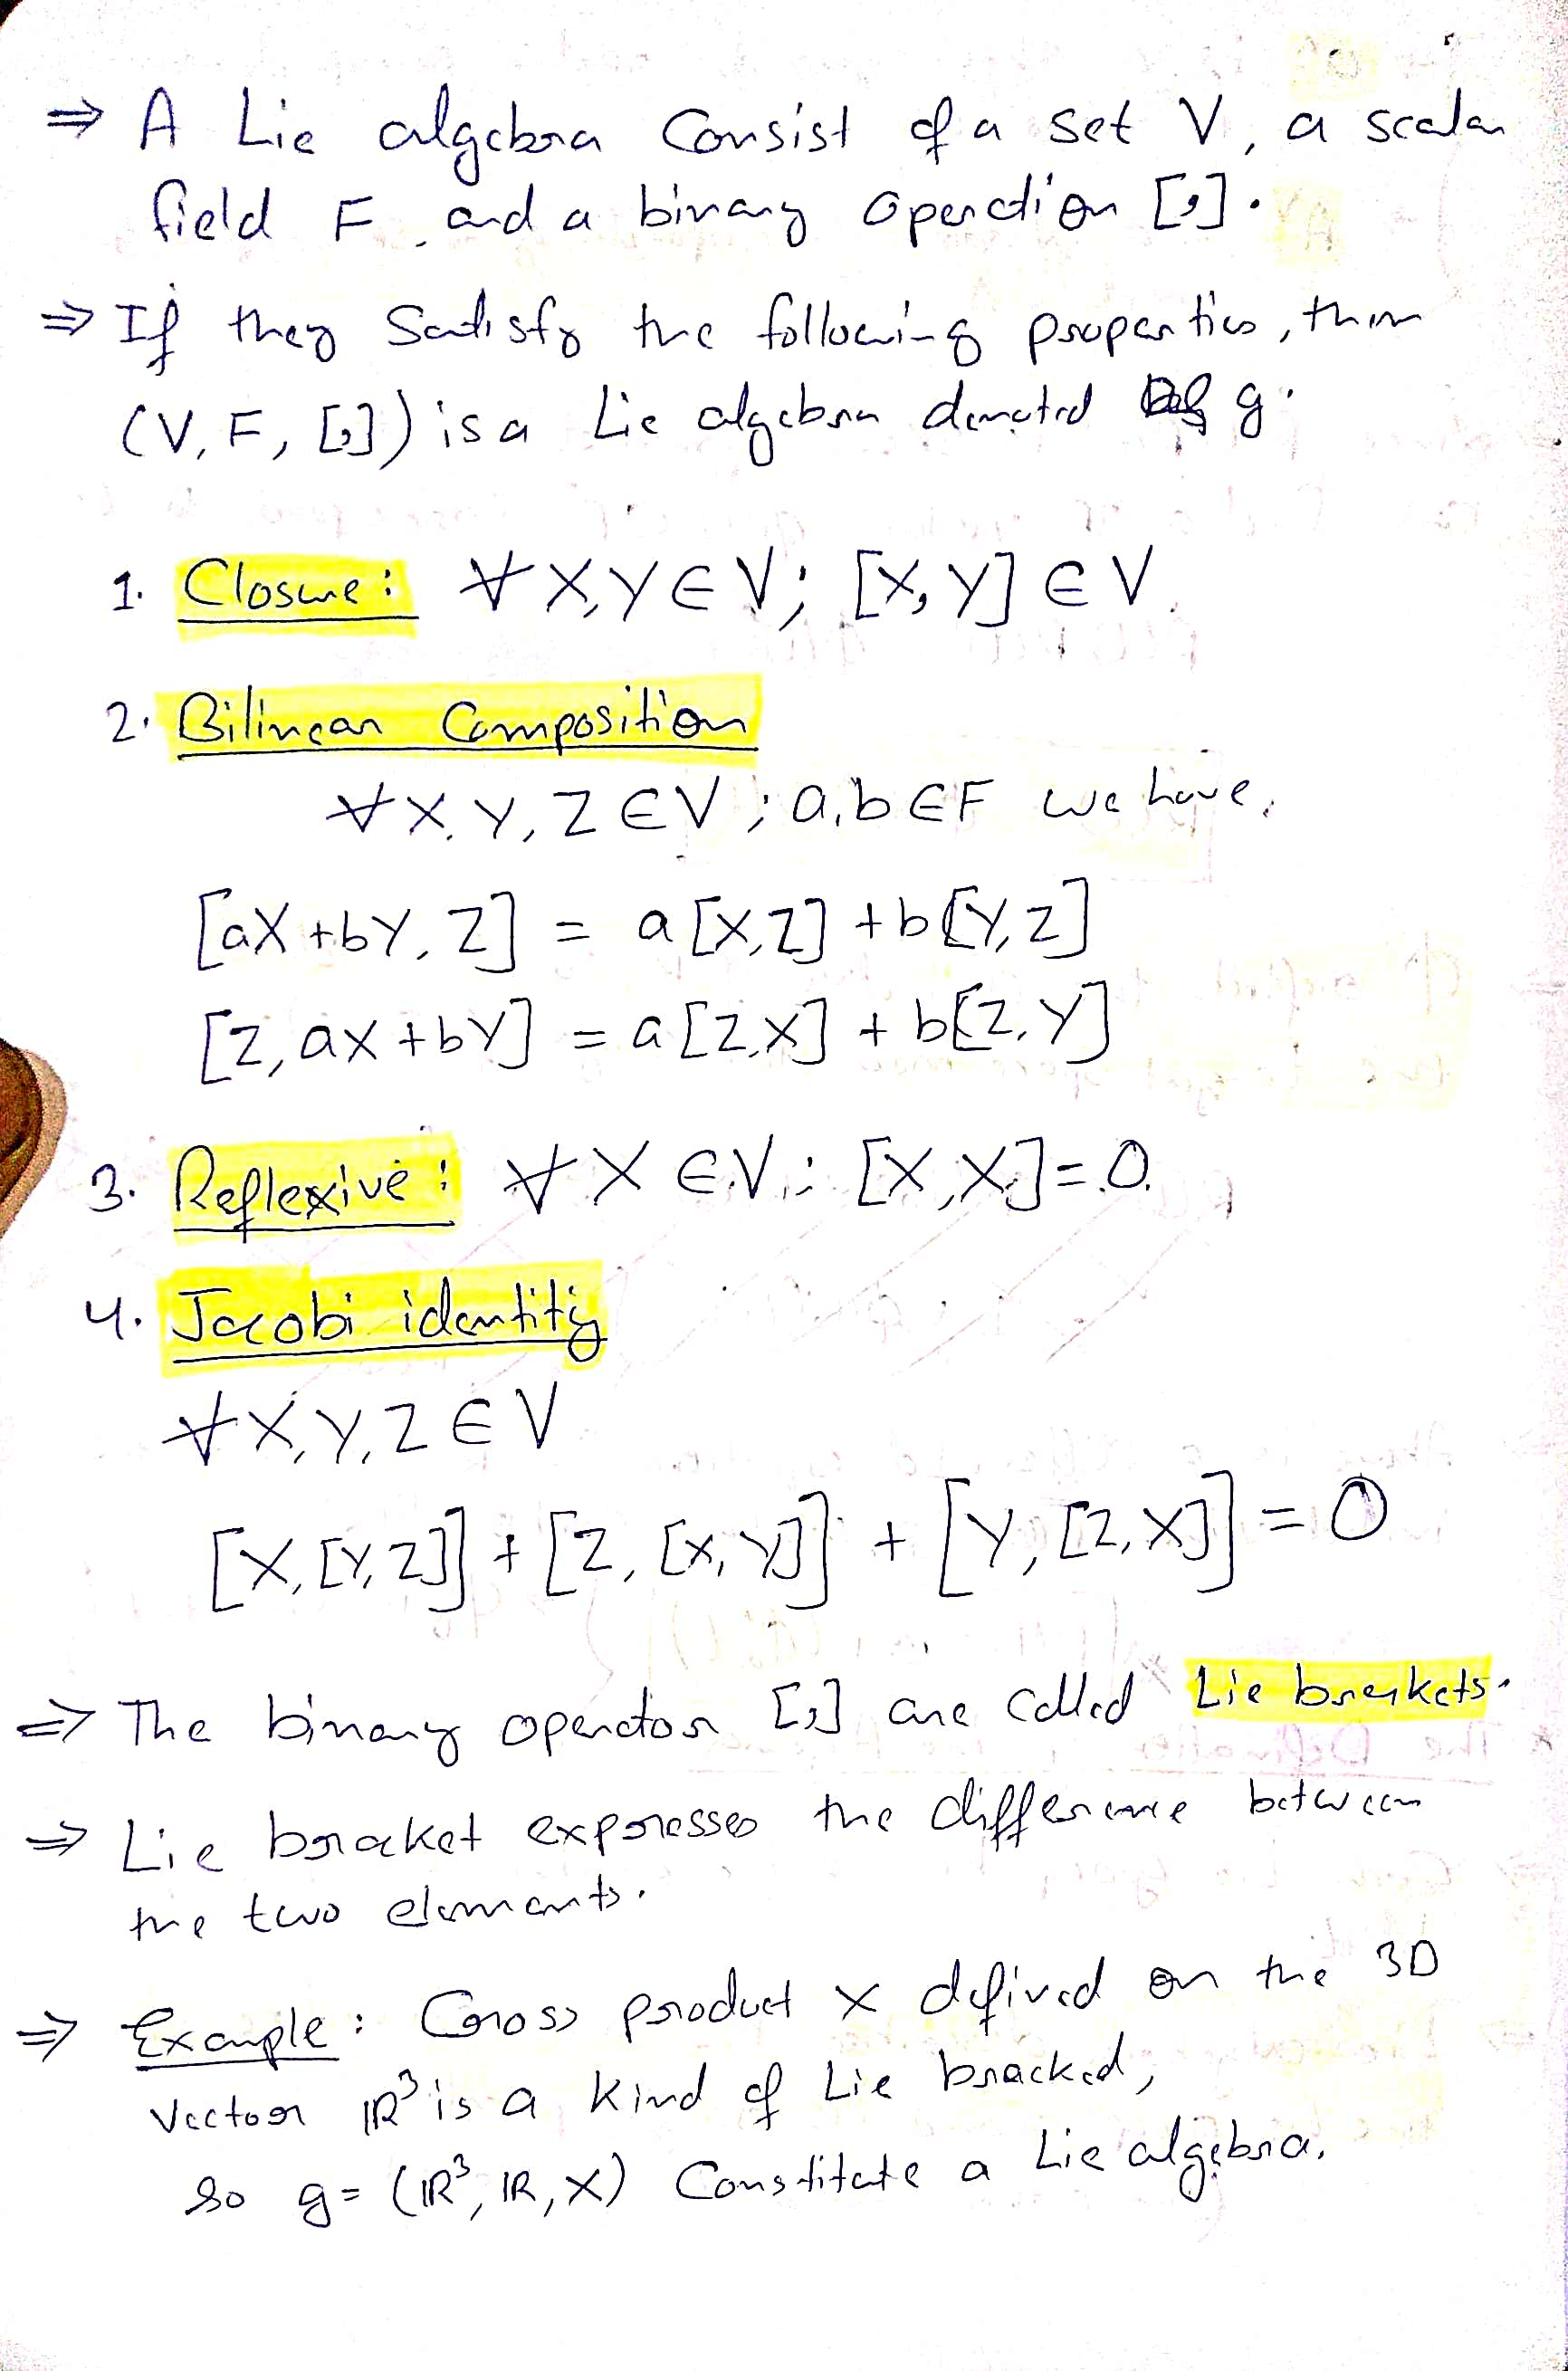 ⇒ A Lie algebra Consist of a set V, a scalar
field F, and a binary operation [,].
⇒ If they Satisfy the following properties, then
(V, F, [,]) is a Lie algebra denoted g.
1. Closure: ∀ X, Y ∈ V; [X, Y] ∈ V.
2. Bilinear Composition
∀ X, Y, Z ∈ V; a, b ∈ F we have,
[aX + bY, Z] = a[X, Z] + b[Y, Z]
[Z, aX + bY] = a[Z, X] + b[Z, Y]
3. Reflexive: ∀ X ∈ V; [X, X] = 0.
4. Jacobi identity
∀ X, Y, Z ∈ V
[X, [Y, Z]] + [Z, [X, Y]] + [Y, [Z, X]] = 0
⇒ The binary operator [,] are called Lie brackets.
⇒ Lie bracket expresses the difference between
the two elements.
⇒ Example: Cross product × defined on the 3D
Vector ℝ³ is a kind of Lie bracked,
So g = (ℝ³, ℝ, ×) Constitute a Lie algebra.